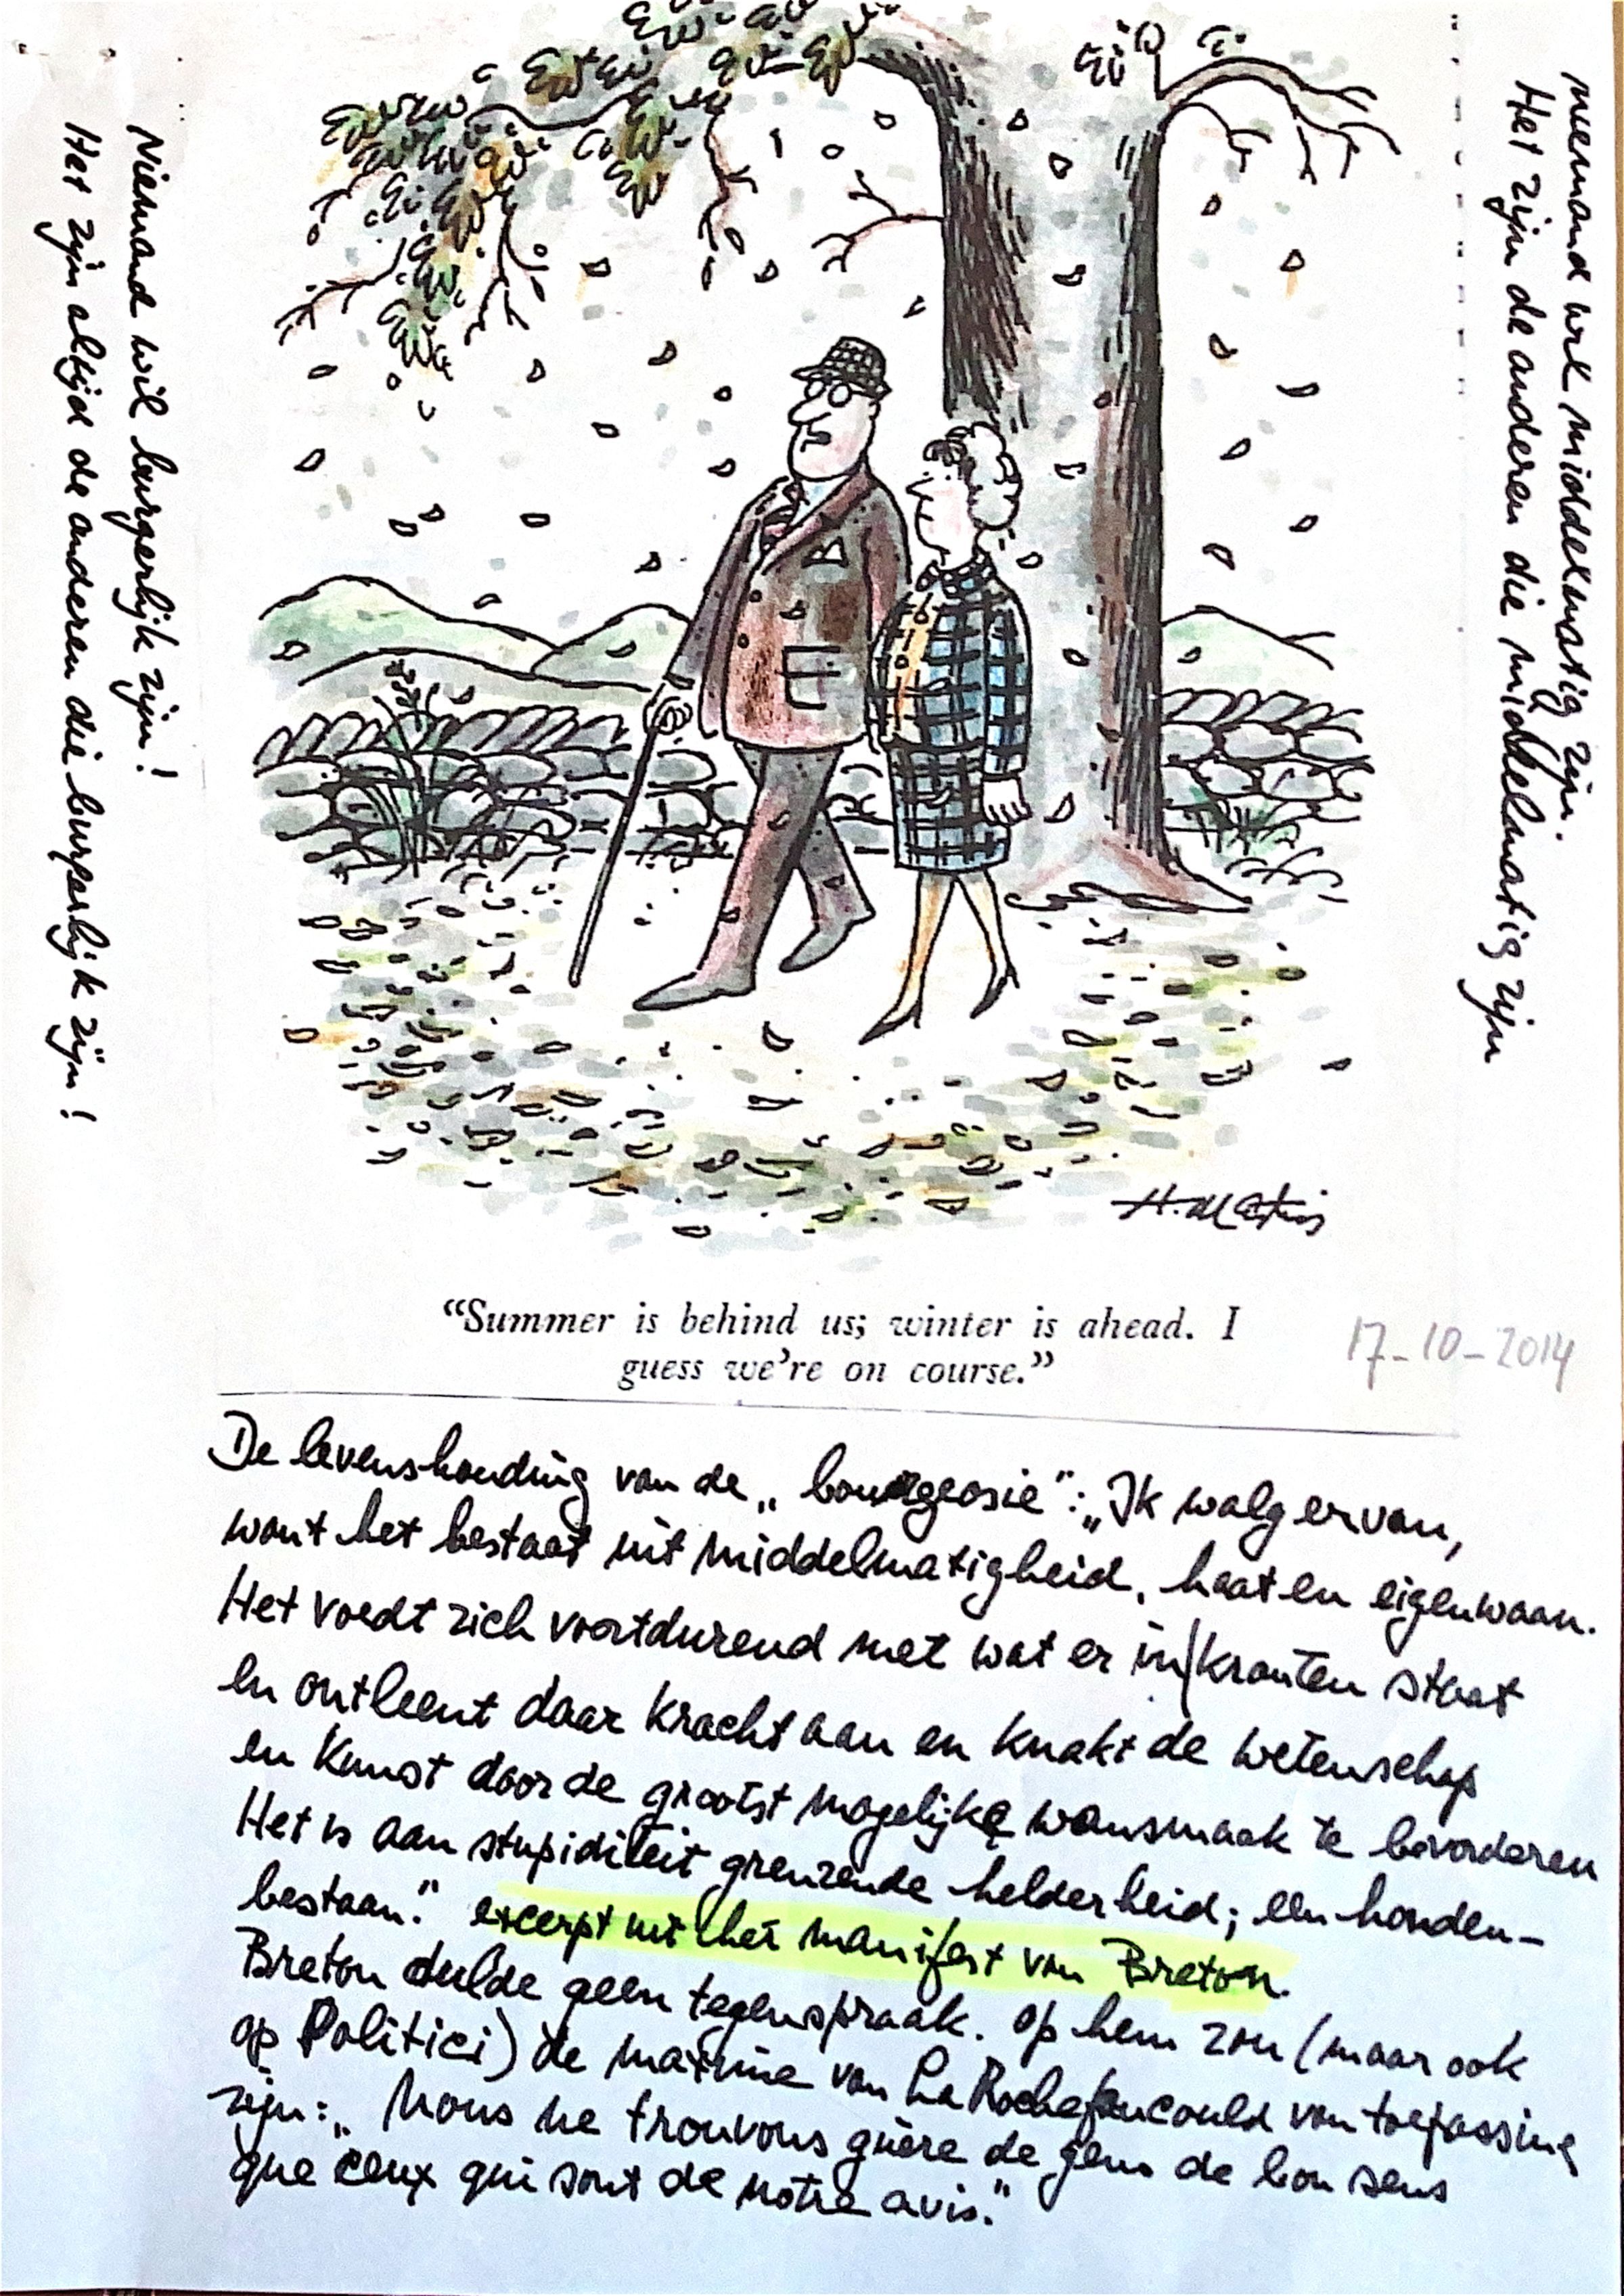 Niemand wil burgerlijk zijn!
Het zijn altijd de anderen die burgerlijk zijn!
niemand wil middelmatig zijn.
Het zijn de anderen die middelmatig zijn
H. Martin
“Summer is behind us; winter is ahead. I
guess we’re on course.”
17-10-2014
De levenshouding van de „bourgeosie”: „Ik walg ervan,
want het bestaat uit middelmatigheid, haat en eigenwaan.
Het voedt zich voortdurend met wat er in kranten staat
en ontleent daar kracht aan en knakt de wetenschap
en Kunst door de grootst mogelijke wansmaak te bevorderen
Het is aan stupiditeit grenzende helderheid; een honden-
bestaan.” excerpt uit het manifest van Breton.
Breton dulde geen tegenspraak. Op hem zou (maar ook
op Politici) de maxime van La Rochefoucould van toepassing
zijn: „Nous ne trouvons guère de gens de bon sens
que ceux qui sont de notre avis.”